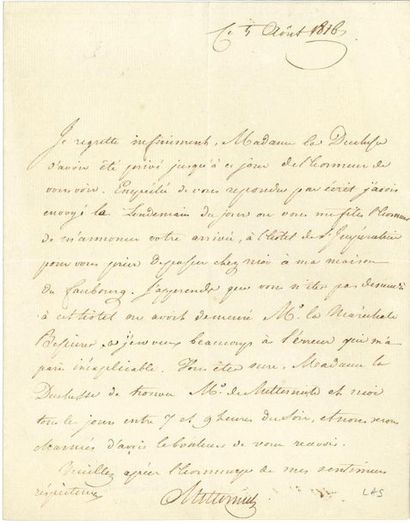 Ce 5 Août 1816
Je regrette infiniment, Madame la Duchesse
d'avoir été privé jusqu'à ce jour de l'honneur de
vous voir. de vous repondre par écrit j'avois
envoyé le lendemain du jour ou vous me fites l'honneur
de m'annoncer votre arrivée, à l'hôtel de l'Impératrice
pour vous prier de passer chez moi à ma maison
du faubourg. J'apprends que vous n'êtes pas
à cet hôtel ou avoit demeuré Me. la Maréchale
Bessieres, à l'erreur qui m'a
paru inexplicable. Vous êtes sure, Madame la
Duchesse de trouver Me. de Metternich et moi
tous les jours entre 7 et 9 heures du soir, et nous serons
charmés d'avoir le bonheur de vous revoir.
Veuillez agréer l'hommage de mes sentimens
respectueux
Metternich
LAS